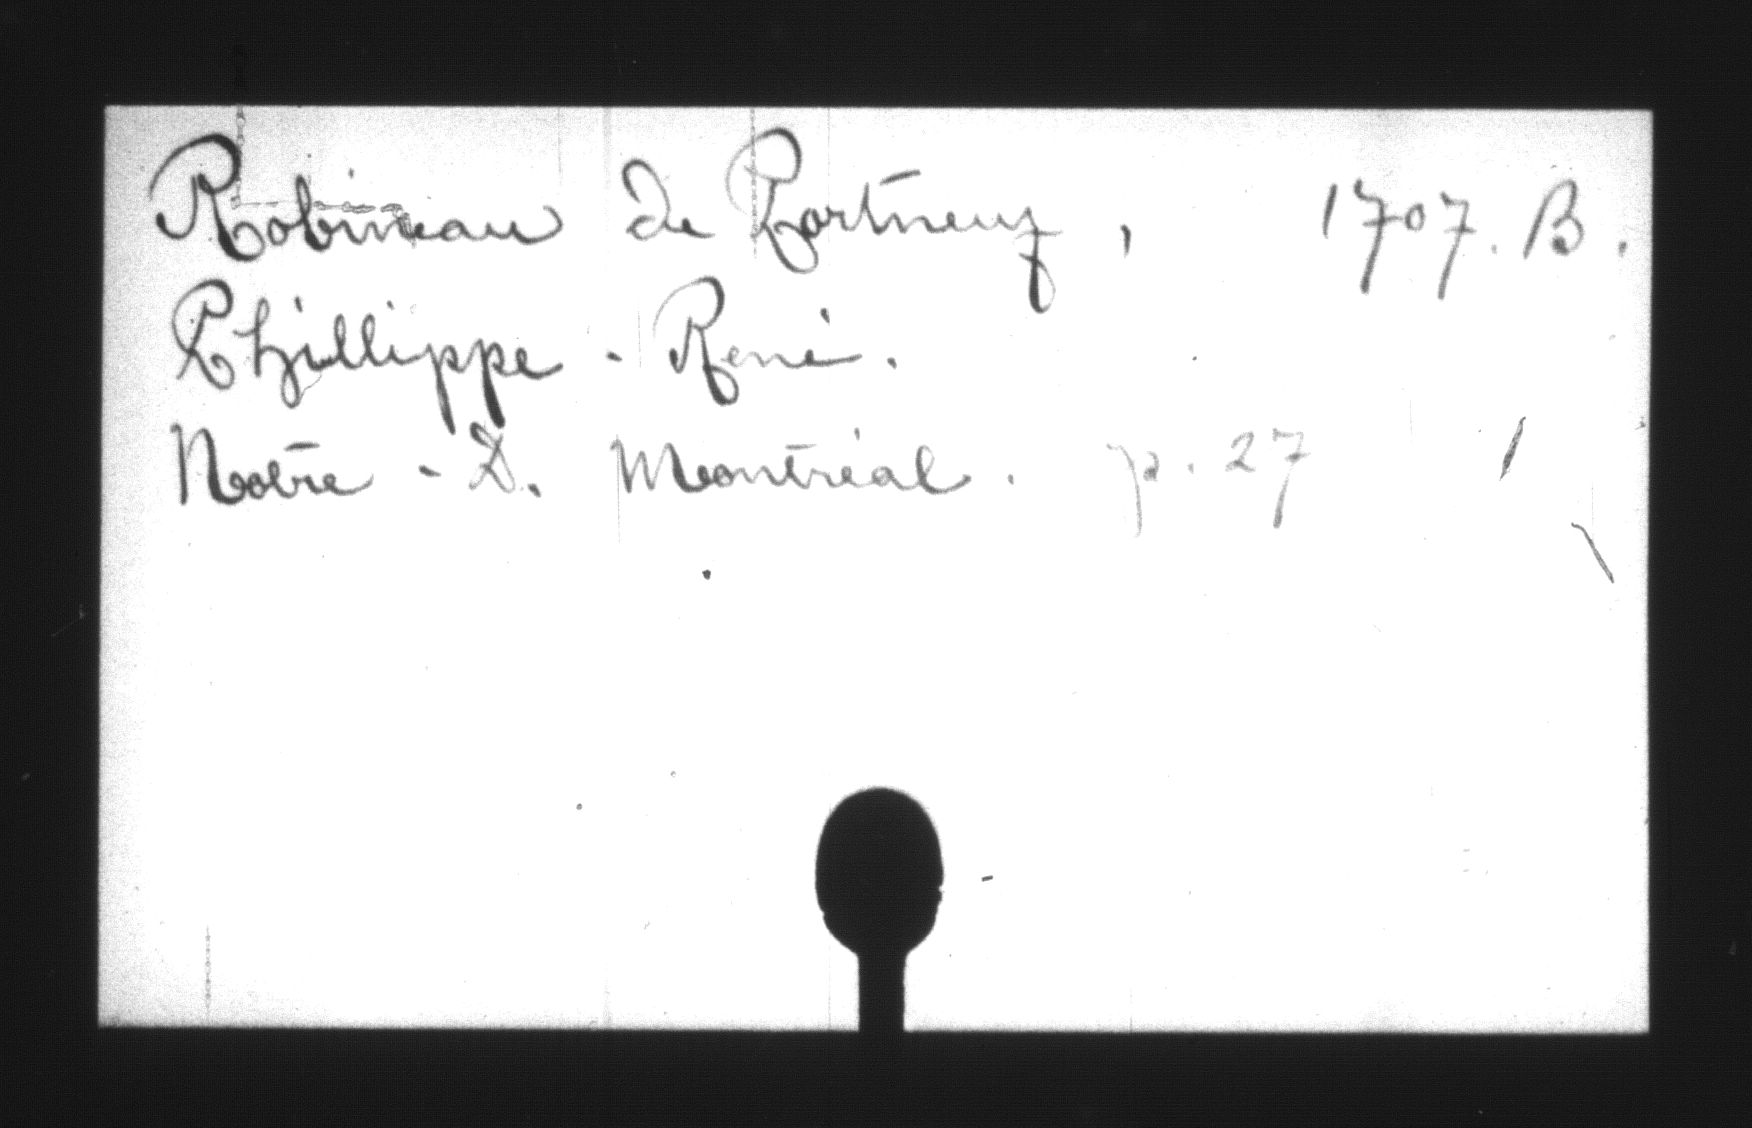 Robineau de Portneuf, 1707. B.
Phillippe - René.
Notre - D. Montréal. p. 27